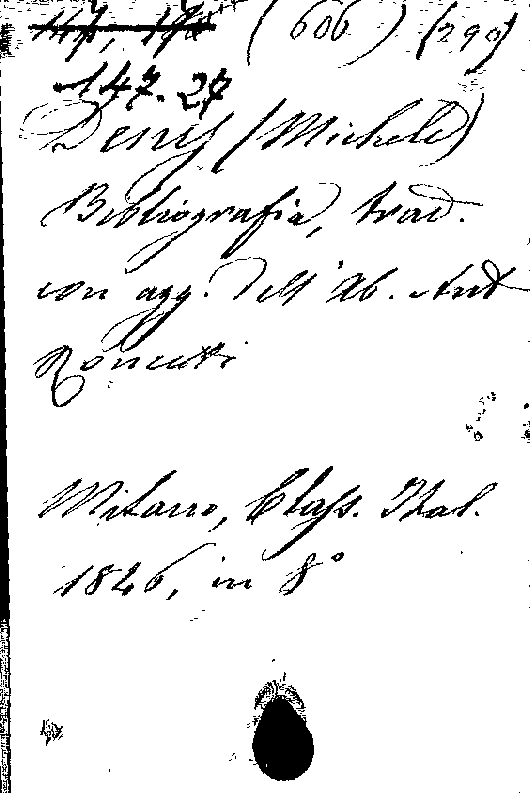 (606) (290)
147.27
Denis (Michele)
Bibliografia, trad.
con agg. dell'Ab. Ant
Roncetti
Milano, Class. Ital.
1846, in 8°